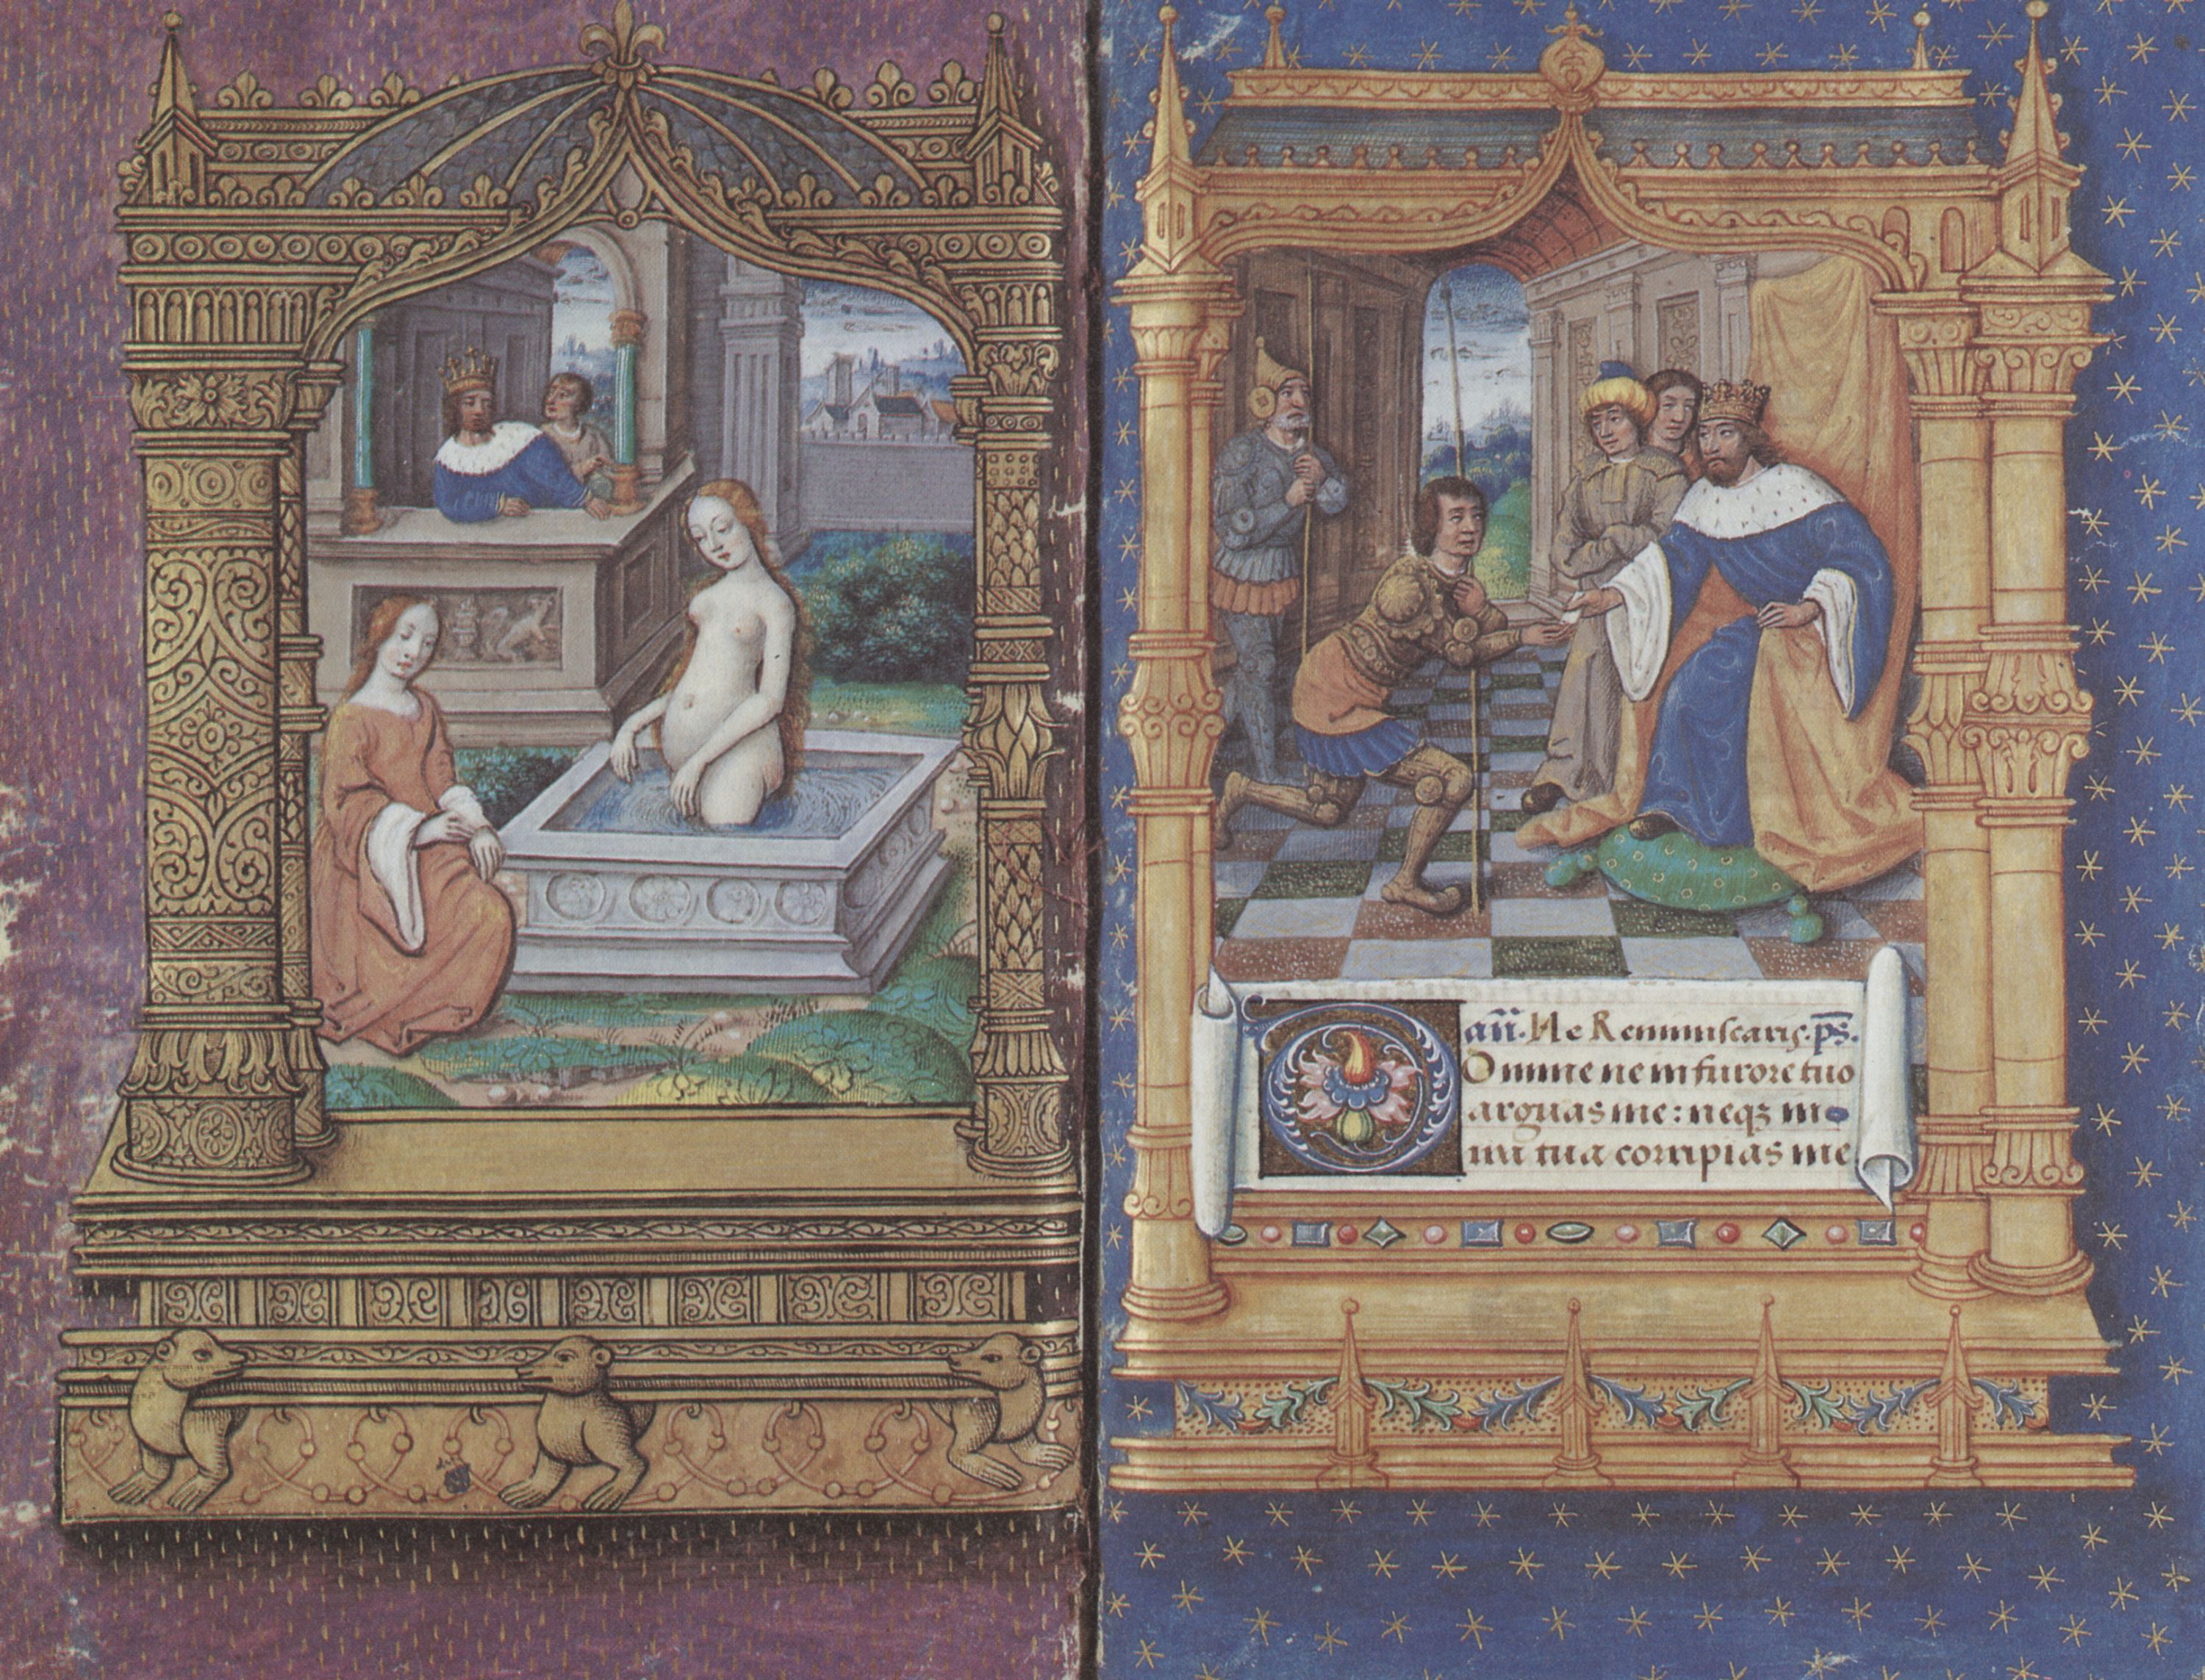 añ. Ne Reminiscaris. ps.
Omine ne in furore tuo
arguas me: neqꝫ in
ira tua corripias me